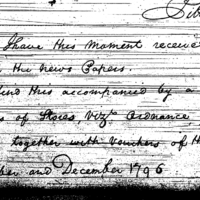 I have this moment receive
the News Papers.
this accompanied by a
of Stores Vizt Ordnance
together with Vouchers of
and December 1796